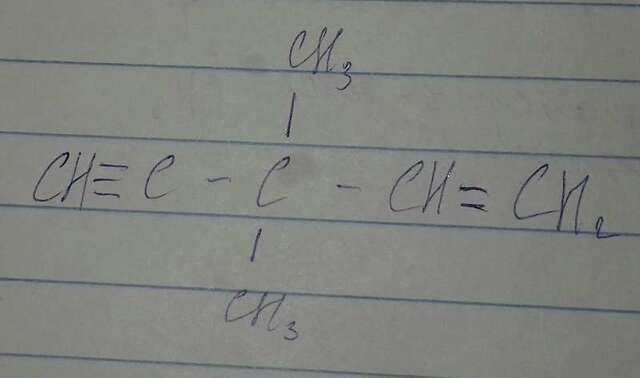 CH₃
|
CH≡C - C - CH=CH₂
|
CH₃